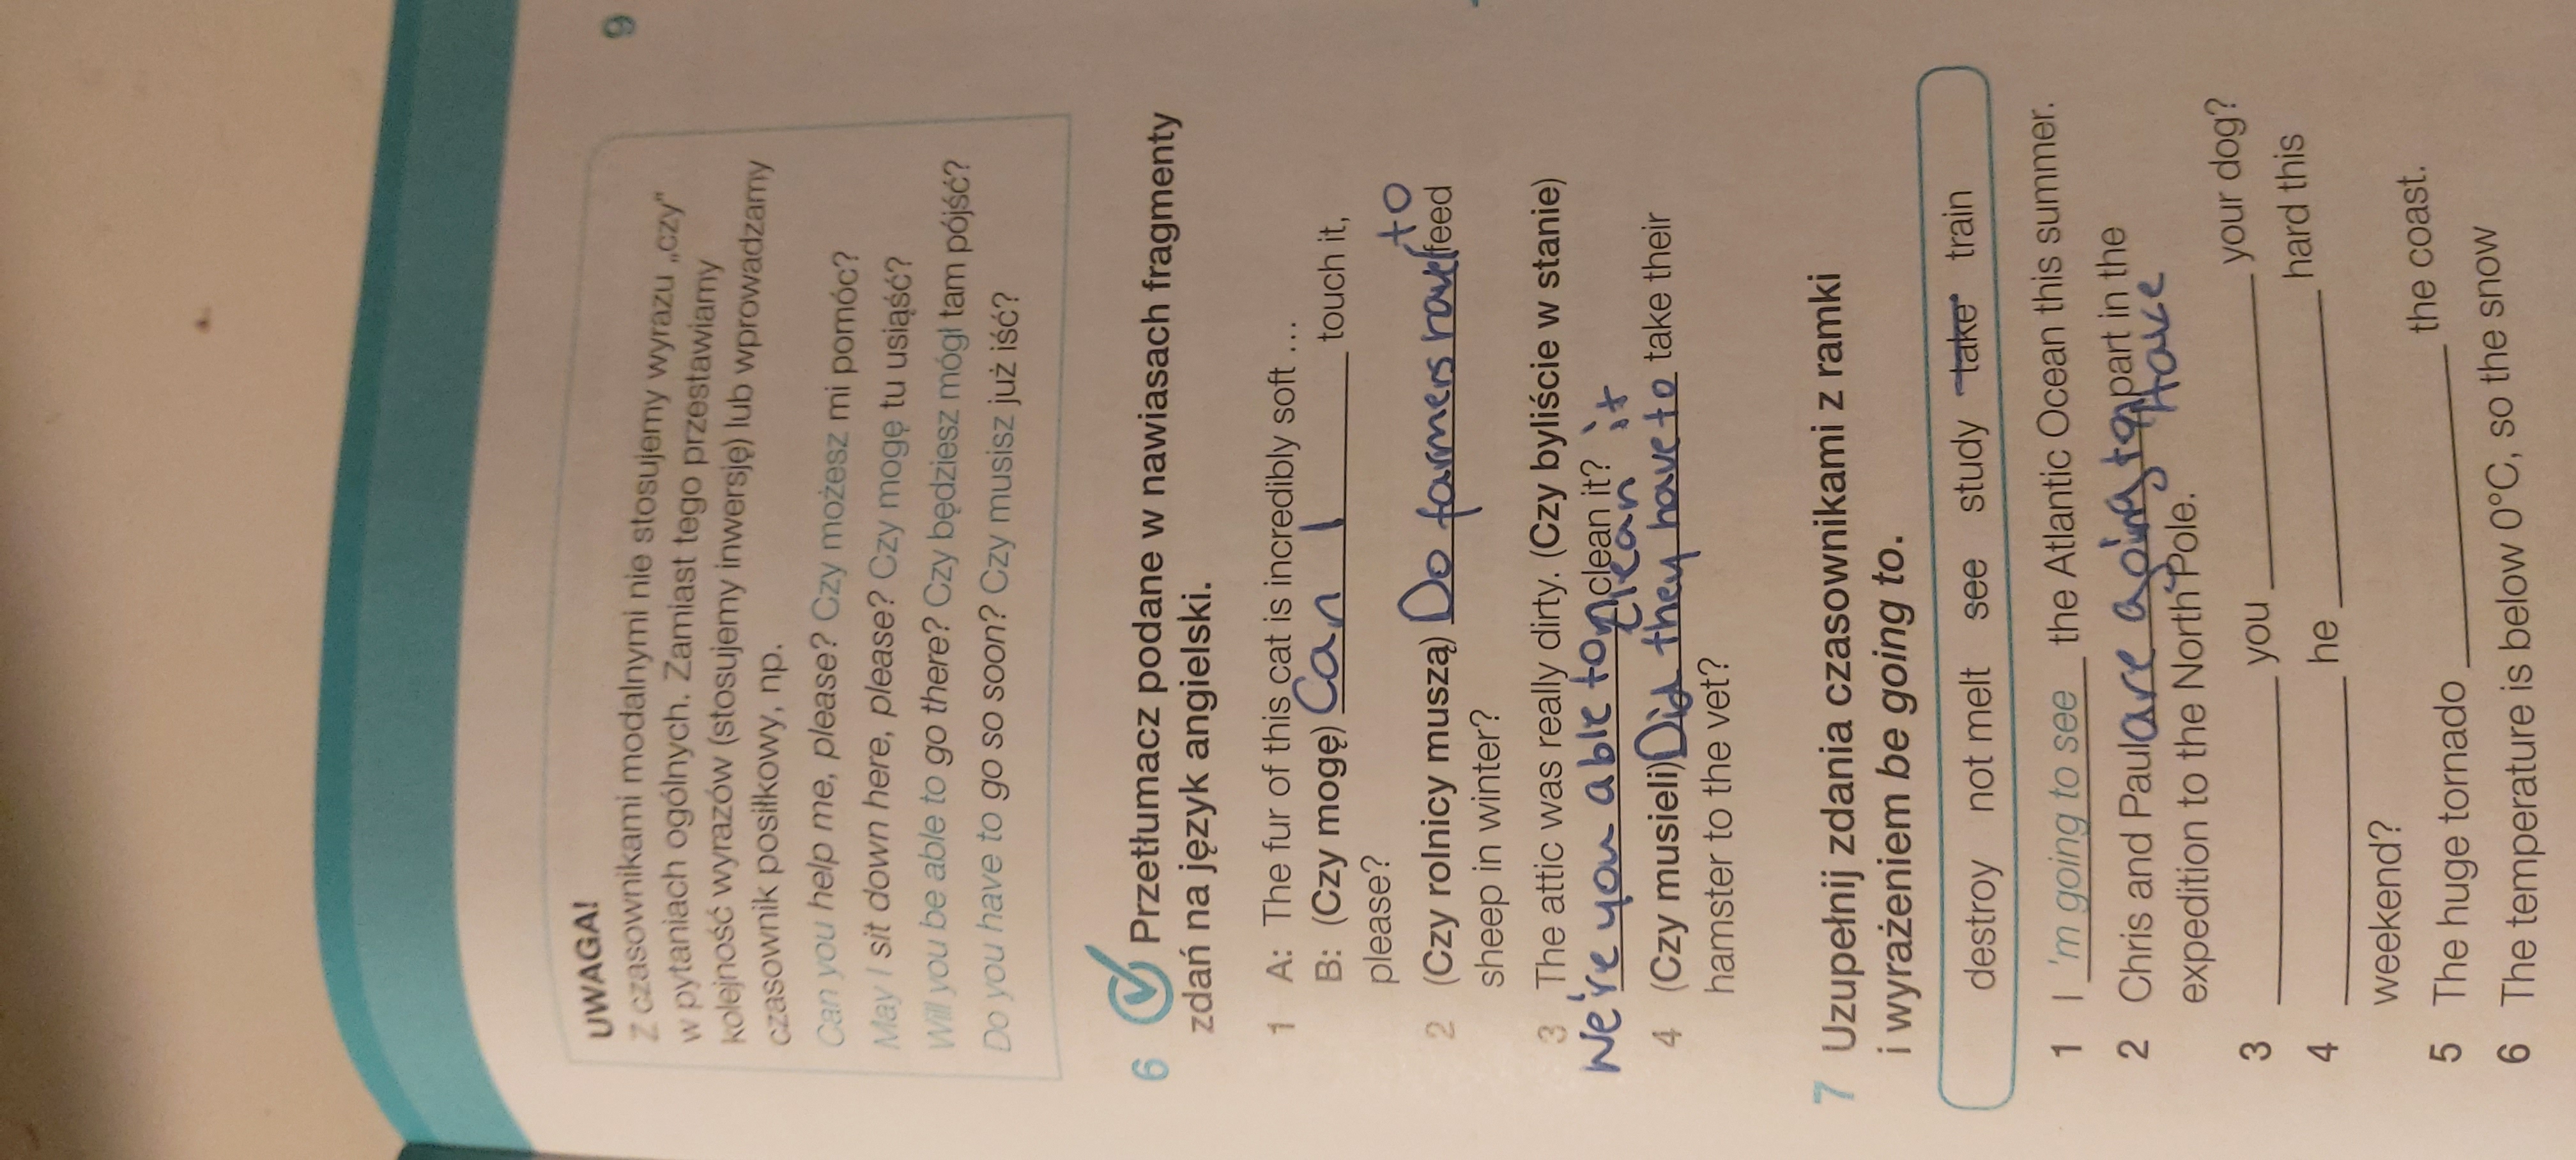 9
UWAGA!
Z czasownikami modalnymi nie stosujemy wyrazu „czy”
w pytaniach ogólnych. Zamiast tego przestawiamy
kolejność wyrazów (stosujemy inwersję) lub wprowadzamy
czasownik posiłkowy, np.
Can you help me, please? Czy możesz mi pomóc?
May I sit down here, please? Czy mogę tu usiąść?
Will you be able to go there? Czy będziesz mógł tam pójść?
Do you have to go so soon? Czy musisz już iść?
6 Przetłumacz podane w nawiasach fragmenty
zdań na język angielski.
1 A: The fur of this cat is incredibly soft ...
B: (Czy mogę) Can I touch it,
please?
2 (Czy rolnicy muszą) Do farmers have to feed
sheep in winter?
3 The attic was really dirty. (Czy byliście w stanie)
We're you able to clean it?
clean it
4 (Czy musieli) Did they have to take their
hamster to the vet?
7 Uzupełnij zdania czasownikami z ramki
i wyrażeniem be going to.
destroy not melt see study take train
1 I 'm going to see the Atlantic Ocean this summer.
2 Chris and Paul are going to part in the
take
expedition to the North Pole.
3 ____ you ____ your dog?
4 ____ he ____ hard this
weekend?
5 The huge tornado ____ the coast.
6 The temperature is below 0°C, so the snow